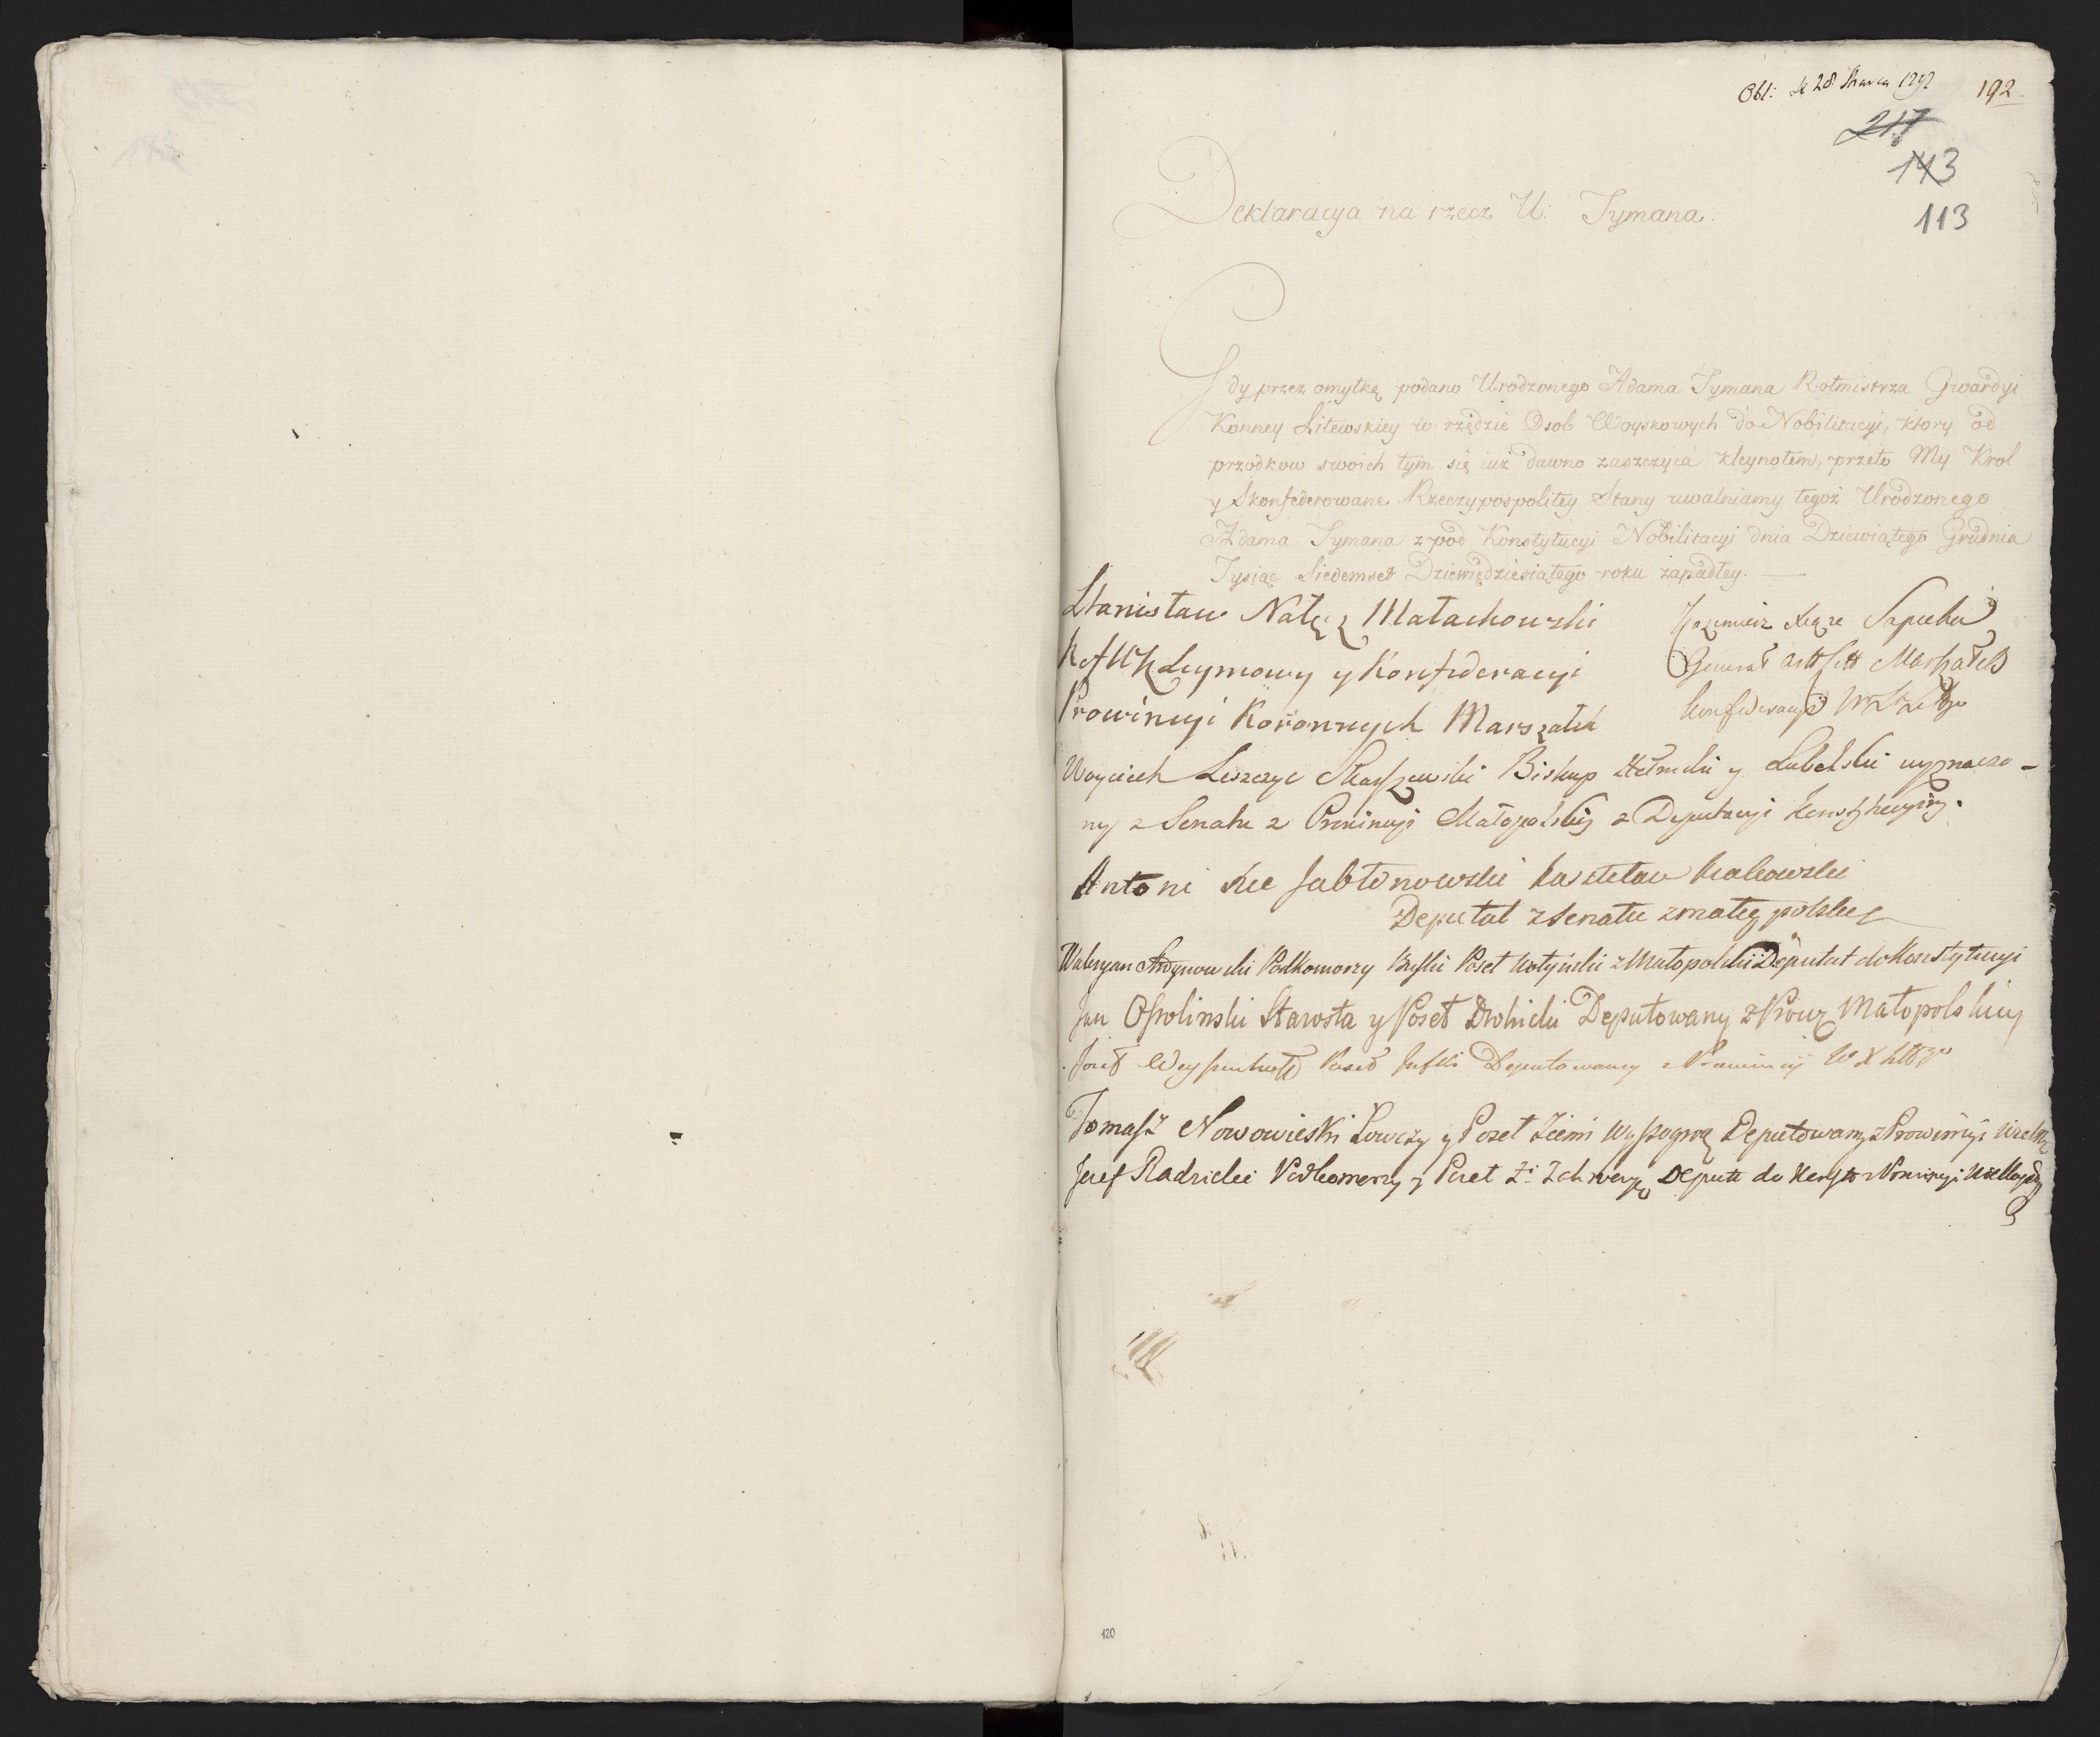 Obl: d 28 Marca 1792
192.
217
143
113
Deklaracya na rzecz U: Tymana.
Gdy przez omyłkę podano Urodzonego Adama Tymana Rotmistrza Gwardyi
Konney Litewskiey w rzędzie Osob Woyskowych do Nobilitacyi, ktory od
przodkow swoich tym się iuż dawno zaszczyca kleynotem, przeto My Krol
y Skonfederowane Rzeczypospolitey Stany uwalniamy tegoż Urodzonego
Adama Tymana z pod Konstytucyi Nobilitacyi dnia Dziewiątego Grudnia
Tysiąc Siedemset Dziewiędziesiątego roku zapadłey.
Stanisław Nałęcz Małachowski
Seymowy y Konfederacyi
Prowincyi Koronnych Marszałek
Kazimierz Xiąże Sapieha
Generał Art Litt Marszałek
Konfederacyi
Woyciech Leszczyc Skarszewski Biskup Chełmski y Lubelski wyznaczo-
ny z Senatu z Prowincyi Małopolskiy z Deputacyi Konstytucyiny.
Antoni Xże Jabłonowski kasztelan krakowski
Deputat z Senatu z małey polskiey
Waleryan Stroynowski Podkomorzy Buski Poseł Wołyński z Małopolskii Deputat do Konstytucyi
Jan Ossolinski Starosta y Poseł Drohicki Deputowany z Prowcy Małopolskiey
Jozef Weyssenhoff Poseł Inflt Deputowany z Prowincyi W X Litt°
Tomasz Nowowieski Łowczy y Poseł Ziemi Wyszogro Deputowany z Prowincyi
Jozef Radzicki Podkomorzy y Poseł Zi Zakroczy Deputa do Konstt z Prowincyi
120